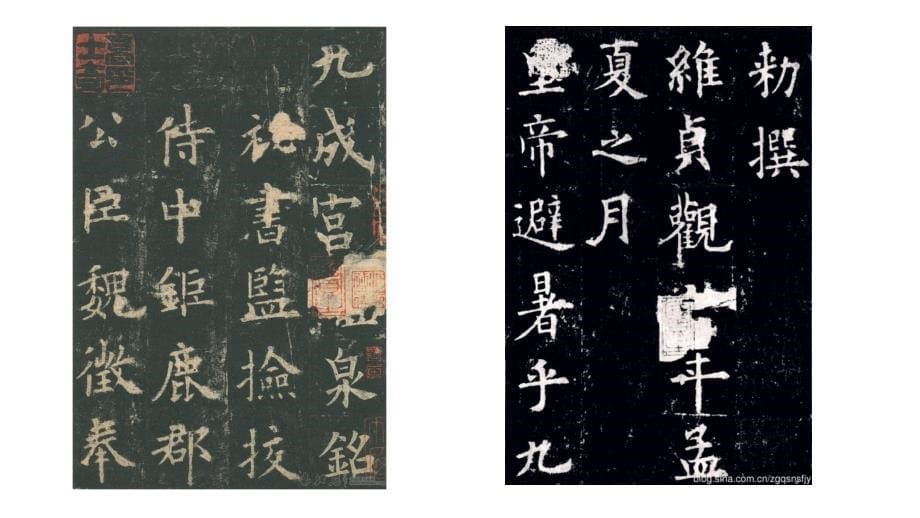 九成宮泉銘
祕書監撿挍
侍中鉅鹿郡
公臣魏徵奉
勑撰
維貞觀年孟
夏之月
皇帝避暑乎九
blog.sina.com.cn/zgqsnsfjy